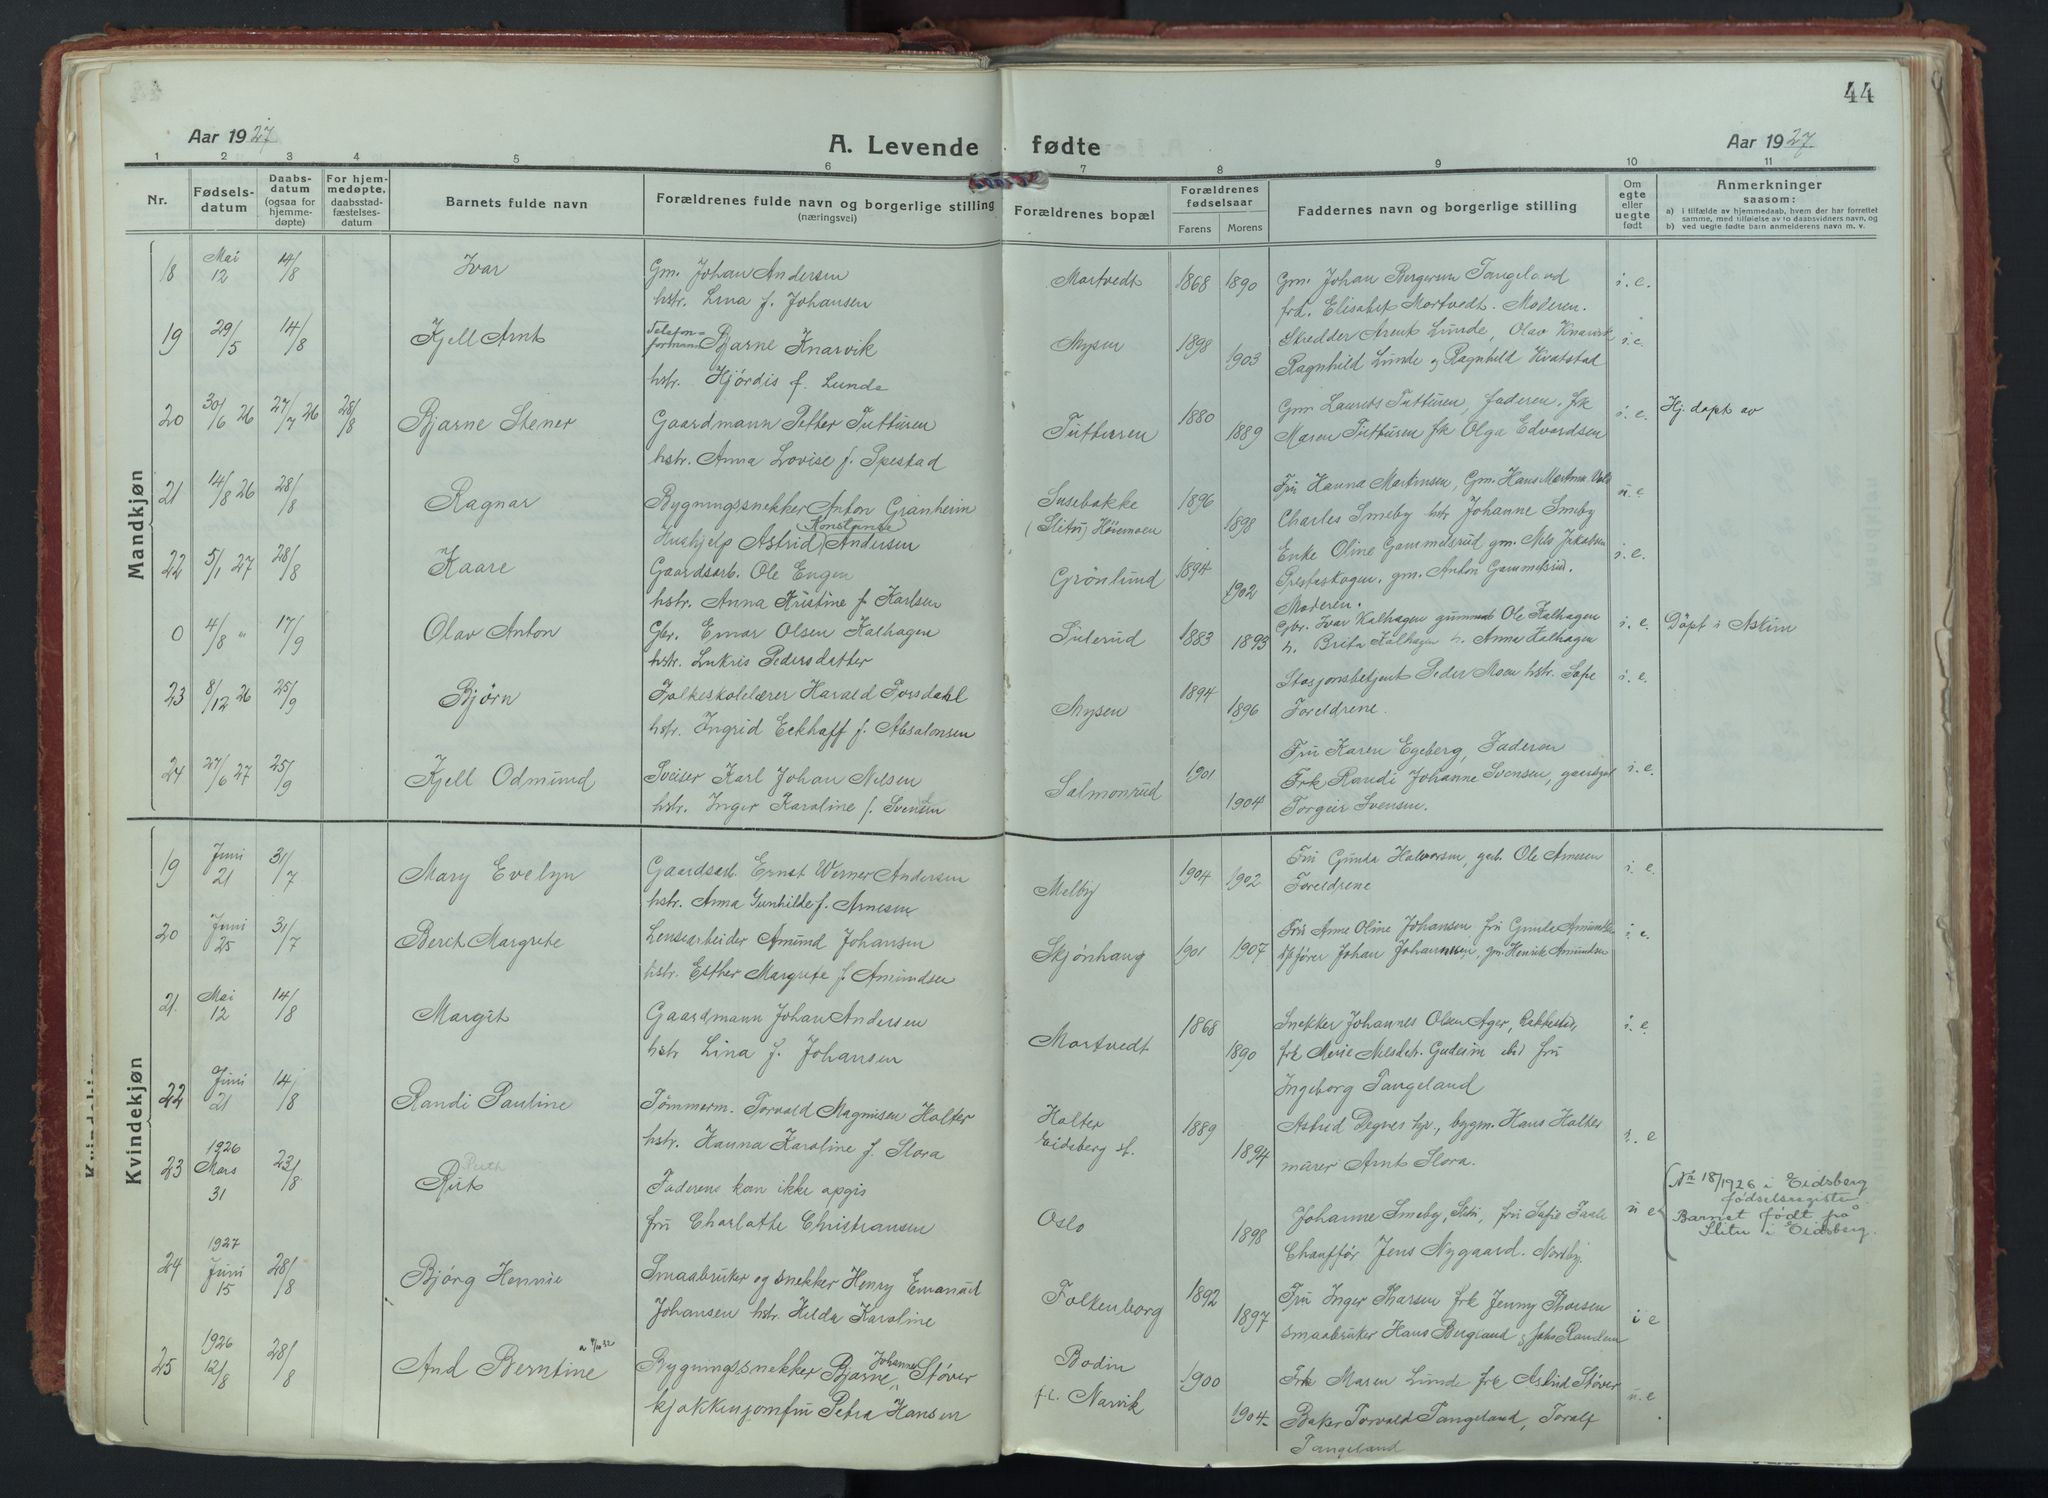 44
Aar 1927
A. Levende fødte
Aar 1927.
1 2 3 4 5 6 7 8 9 10 11
Nr.
Fødsels-
datum
Daabs-
datum
(ogsaa for
hjemme-
døpte)
For hjem-
medøpte,
daabsstad-
fæstelses-
datum
Barnets fulde navn
Forældrenes fulde navn og borgerlige stilling
(næringsvei)
Forældrenes bopæl
Forældrenes
fødselsaar
Farens Morens
Faddernes navn og borgerlige stilling
Om
egte
eller
uegte
født
Anmerkninger
saasom:
a) i tilfælde av hjemmedaab, hvem der har forrettet
samme, med tilføielse av to daabsvidners navn, og
b) ved uegte fødte barn anmelderens navn m. v.
Mandkjøn
18 Mai 12 14/8 Ivar
Gm. Johan Andersen
hstr. Lina f. Johansen
Mortvedt 1868 1890
Gm. Johan Bergerum Tangeland
frk. Elisabet Mortvedt. Moderen.
i. e.
19 29/5 14/8 Kjell Arnt
Telefon-
formann Bjarne Knarvik
hstr. Hjördis f. Lunde
Mysen 1898 1903
Skredder Arent Lunde, Olav Knarvik
Ragnhild Lunde og Ragnhild Kvatstad
i. e.
20 30/6 26 27/7 26 28/8 Bjarne Stener
Gaardmann Petter Tutturen
hstr. Anna Lovise f. Spestad
Tutturen 1880 1889
Gm. Laurits Tutturen, Faderen. frk
Maren Tutturen frk Olga Edvardsen
i. e.
Hj. døpt av
21 14/8 26 28/8 Ragnar
Bygningssnekker Anton Granheim
Hushjelp Astrid Konstanse Andersen
Susebakke
(Slitu) Höiemoen
1896 1898
Fru Hanna Martinsen, Gm. Hans Martin
Charles Smeby hstr Johanne Smeby
u. e
22 5/1 27 28/8 Kaare
Gaardsarb. Ole Engen
hstr. Anna Kristine f. Karlsen
Grönlund 1894 1902
Enke Oline Gammelsrud gm. Nils Jakobsen
Prestaskogen. gm. Anton Gammelsrud.
Moderen.
i. e.
0 4/8 " 17/9 Olav Anton
Gbr. Einar Olsen Kalhagen
hstr. Lukris Pedersdatter
Sulerud 1883 1893
Gbr. Ivar Kalhagen Ole Kalhagen
h. Brita Kalhagen h. Anna Kalhagen
i. e.
Döpt i Askim
23 8/12 26 25/9 Björn
Folkeskolelærer Harald Torsdahl
hstr. Ingrid Eckhaff f. Absalonsen
Mysen 1894 1896
Stasjonsbetjent Peder Moen hstr. Sofie
Foreldrene.
i. e.
24 27/6 27 25/9 Kjell Odmund
Sveiser Karl Johan Nilsen
hstr. Inger Karoline f. Svensen
Salmonrud 1901 1904
Fru Karen Egeberg, Faderen
Frk Randi Johanne Svensen,
Torgeir Svensen.
i. e.
Kvindekjøn
19 Juni 21 31/7 Mary Evelyn
Gaardsarb. Ernst Werner Andersen
hstr. Anna Gunhilde f. Arnesen
Melby 1904 1902
Fru Gunda Halvorsen, garb. Ole Arnesen
Foreldrene
i. e.
20 Juni 25 31/7 Beret Margrete
Lensearbeider Amund Johansen
hstr. Esther Margrete f. Amundsen
Skjönhaug 1901 1907
Fru Anne Oline Johansen fru Gunda Amundsen
Johan Johannesen, gm. Henrik Amundsen
i. e.
21. Mai 12 14/8 Margit
Gaardmann Johan Andersen
hstr Lina f. Johansen
Mortvedt 1868 1890
Snekker Johannes Olsen Ager,
frk Marie Nilsdtr. Gudeim fru
Ingeborg Tangeland
i. e.
22 Juni 21 14/8 Randi Pauline
Tömmerm. Torvald Magnusen Halter
hstr. Hanna Karoline f. Slora
Halter
Eidsberg
1889 1894
Astrid Degnes bygm. Hans Halter
murer Arnt Slora.
i. e
23 1926 Mars 31 23/8 Rut Ruth
Faderens kan ikke opgis
fru Charlotte Christiansen
Oslo 1898
Johanne Smeby, Slitu, fru Sofie
Chauffør Jens Nygaard. Nordby.
u e
Nr 18/1926 i Eidsberg
fødselsregister.
Barnet født på
Slitu i Eidsberg.
24 1927 Juni 15 28/8 Bjørg Hennie
Smaabruker og snekker Henry Emanuel
Johansen hstr. Hilda Karoline
Folkenborg 1892 1897
Fru Inger Thorsen frk Jenny Thorsen
smaabruker Hans Bergrand
i e
25 1926 12/8 28/8 Aud Berntine
Bygningssnekker Bjarne Johannes Støver
kjøkkenjomfru Petra Hansen
Bodin
f.t. Narvik
1900 1904
Frk Maren Lunde frk Astrid Støver
Baker Torvald Tangeland, Toralf
Tangeland
u. e